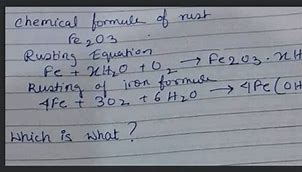 chemical formula of rust
Fe2O3
Rusting Equation
Fe + xH2O + O2 → Fe2O3. xH
Rusting of iron formula
4Fe + 3O2 + 6H2O → 4Fe(OH
Which is what?